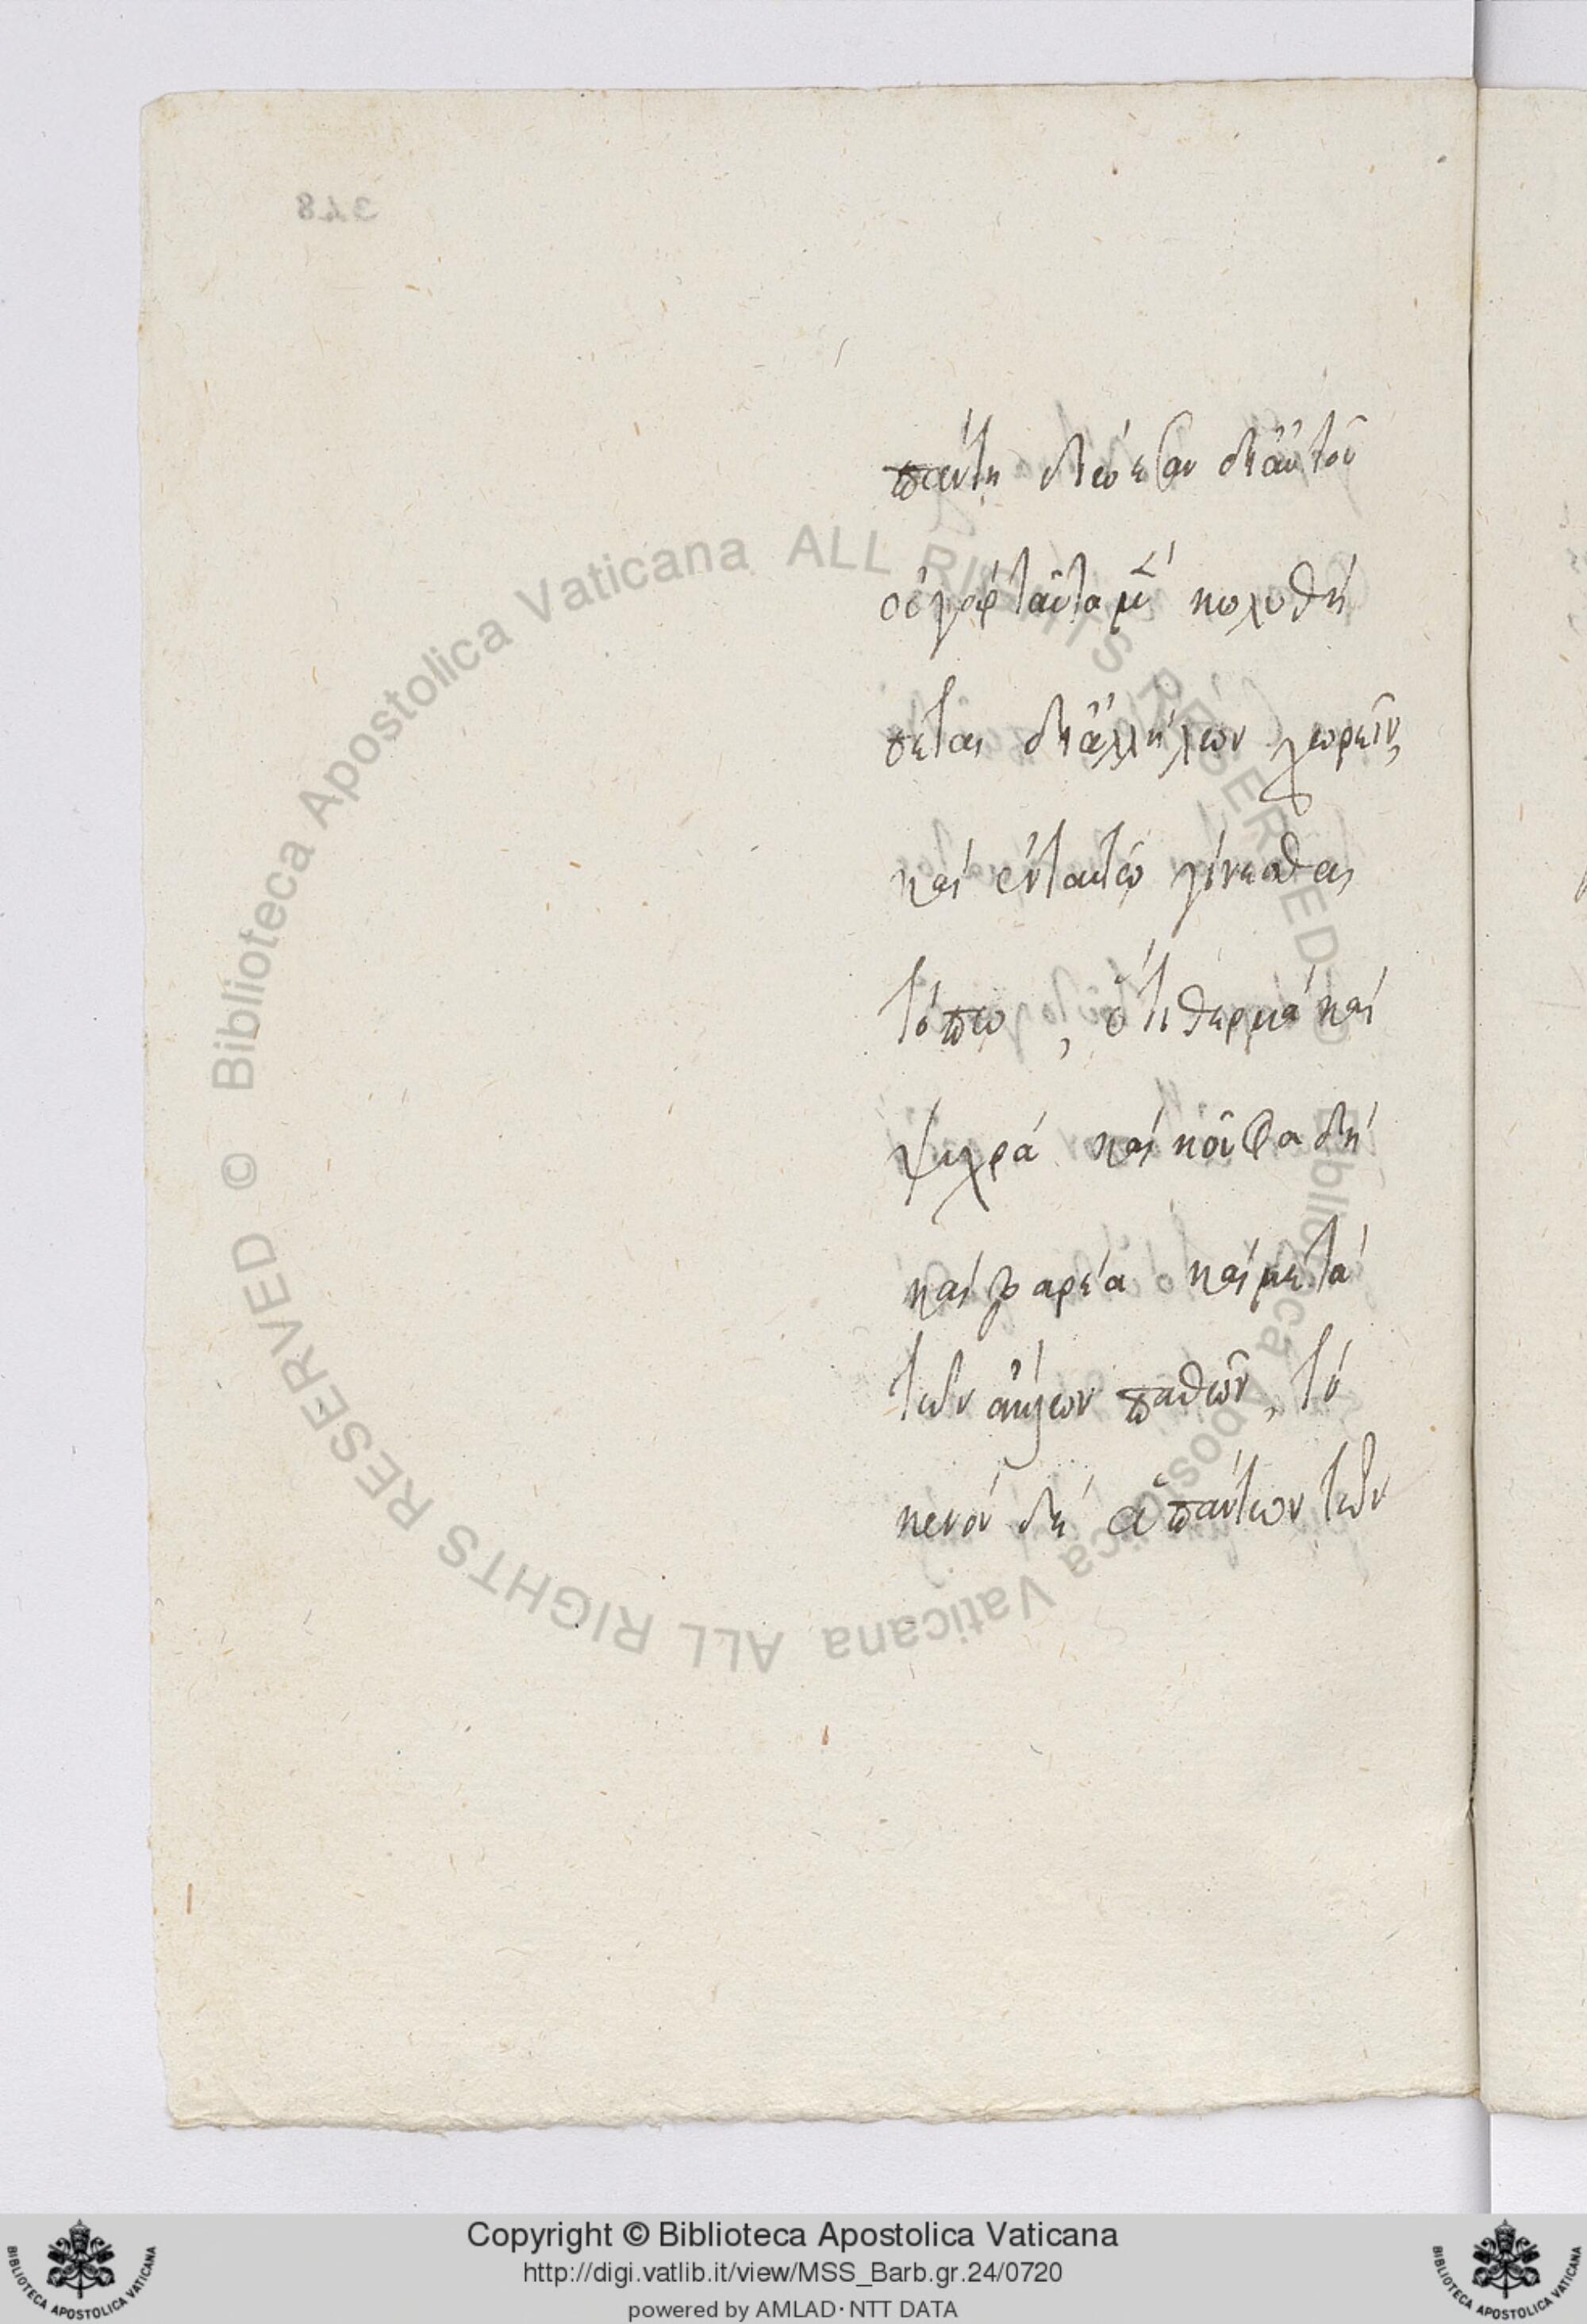 348
πάντη δίεισιν δι' αὐτοῦ
οὐ γὰρ ταῦτα μὲν κωλυθή
σεται δι' ἀλλήλων χωρεῖν,
καὶ ἐν ταυτῷ γίνεσθαι
τόπῳ, ὅτι θερμὰ καὶ
ψυχρὰ καὶ κοῦφα δὴ
καὶ βαρέα καὶ μετὰ
τῶν ἄλλων παθῶν, τὸ
κενὸν δὲ ἁπάντων τῶν
Biblioteca Apostolica Vaticana ALL RIGHTS RESERVED ©
Biblioteca Apostolica Vaticana ALL RIGHTS RESERVED ©
Copyright © Biblioteca Apostolica Vaticana
http://digi.vatlib.it/view/MSS_Barb.gr.24/0720
powered by AMLAD·NTT DATA
BIBLIOTECA APOSTOLICA VATICANA
BIBLIOTECA APOSTOLICA VATICANA